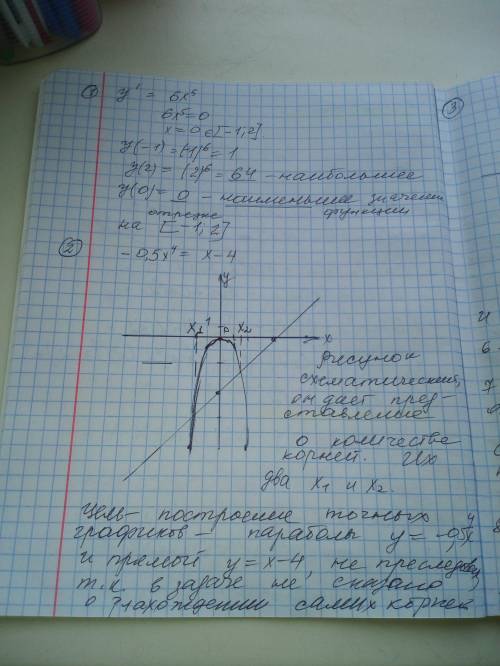 ① y' = 6x⁵
6x⁵=0
x = 0 ∈ [-1; 2]
y(-1) = (-1)⁶ = 1
y(2) = (2)⁶ = 64 - наибольшее
y(0) = 0 - наименьшее значение
отрезке функции
на [-1; 2]
② -0,5x⁴ = x-4
y
x₁ 0 x₂ x
Рисунок
схематический,
он дает пред-
ставление
о количестве
корней. Их
два x₁ и x₂.
Цель - построение точных
графиков - параболы y = -0,5x⁴
и прямой y = x-4, не преследов
т.к. в задаче не сказано
о нахождении самих корней
③